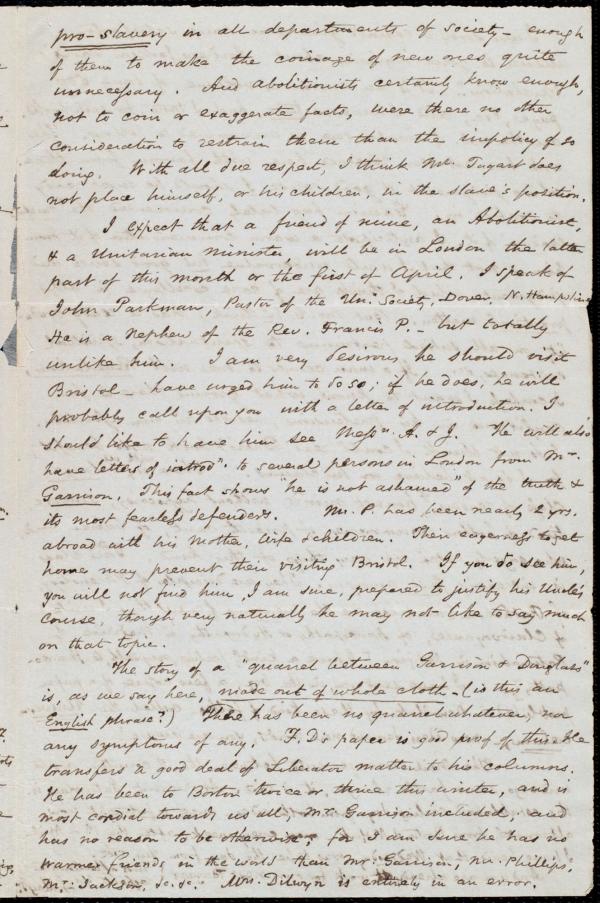 pro-slavery in all departments of society - enough
of them to make the coinage of new ones quite
unnecessary. And abolitionists certainly know enough,
not to coin or exaggerate facts, were there no other
consideration to restrain them than the impolicy of so
doing. With all due respect, I think Mr. Tagart does
not place himself, or his children, in the slave's position.
I expect that a friend of mine, an Abolitionist,
& a Unitarian minister, will be in London the latter
part of this month or the first of April. I speak of
John Parkman, Pastor of the Un: Society, Dover, N. Hampshire
He is a nephew of the Rev. Francis P. - but totally
unlike him. I am very desirous he should visit
Bristol - have urged him to do so; if he does, he will
probably call upon you with a letter of introduction. I
should like to have him see Messrs. A. & J. He will also
have letters of introdn. to several persons in London from Mr.
Garrison. This fact shows "he is not ashamed" of the truth &
its most fearless defenders. Mr. P. has been nearly 2 yrs.
abroad with his Mother, Wife & children. Their eagerness to get
home may prevent their visiting Bristol. If you do see him,
you will not find him, I am sure, prepared to justify his Uncle's
course, though very naturally he may not like to say much
on that topic.
The story of a "quarrel between Garrison & Douglass"
is, as we say here, made out of whole cloth - (is this an
English phrase?) There has been no quarrel whatever, nor
any symptoms of any. F. D's paper is good proof of this. He
transfers a good deal of Liberator matter to his columns.
He has been to Boston twice or thrice this winter, and is
most cordial towards us all, Mr Garrison included, and
has no reason to be otherwise, for I am sure he has no
warmer friends in the world than Mr. Garrison, Mr. Phillips,
Mr. Jackson, &c. &c. Mrs. Dilwyn is entirely in an error.